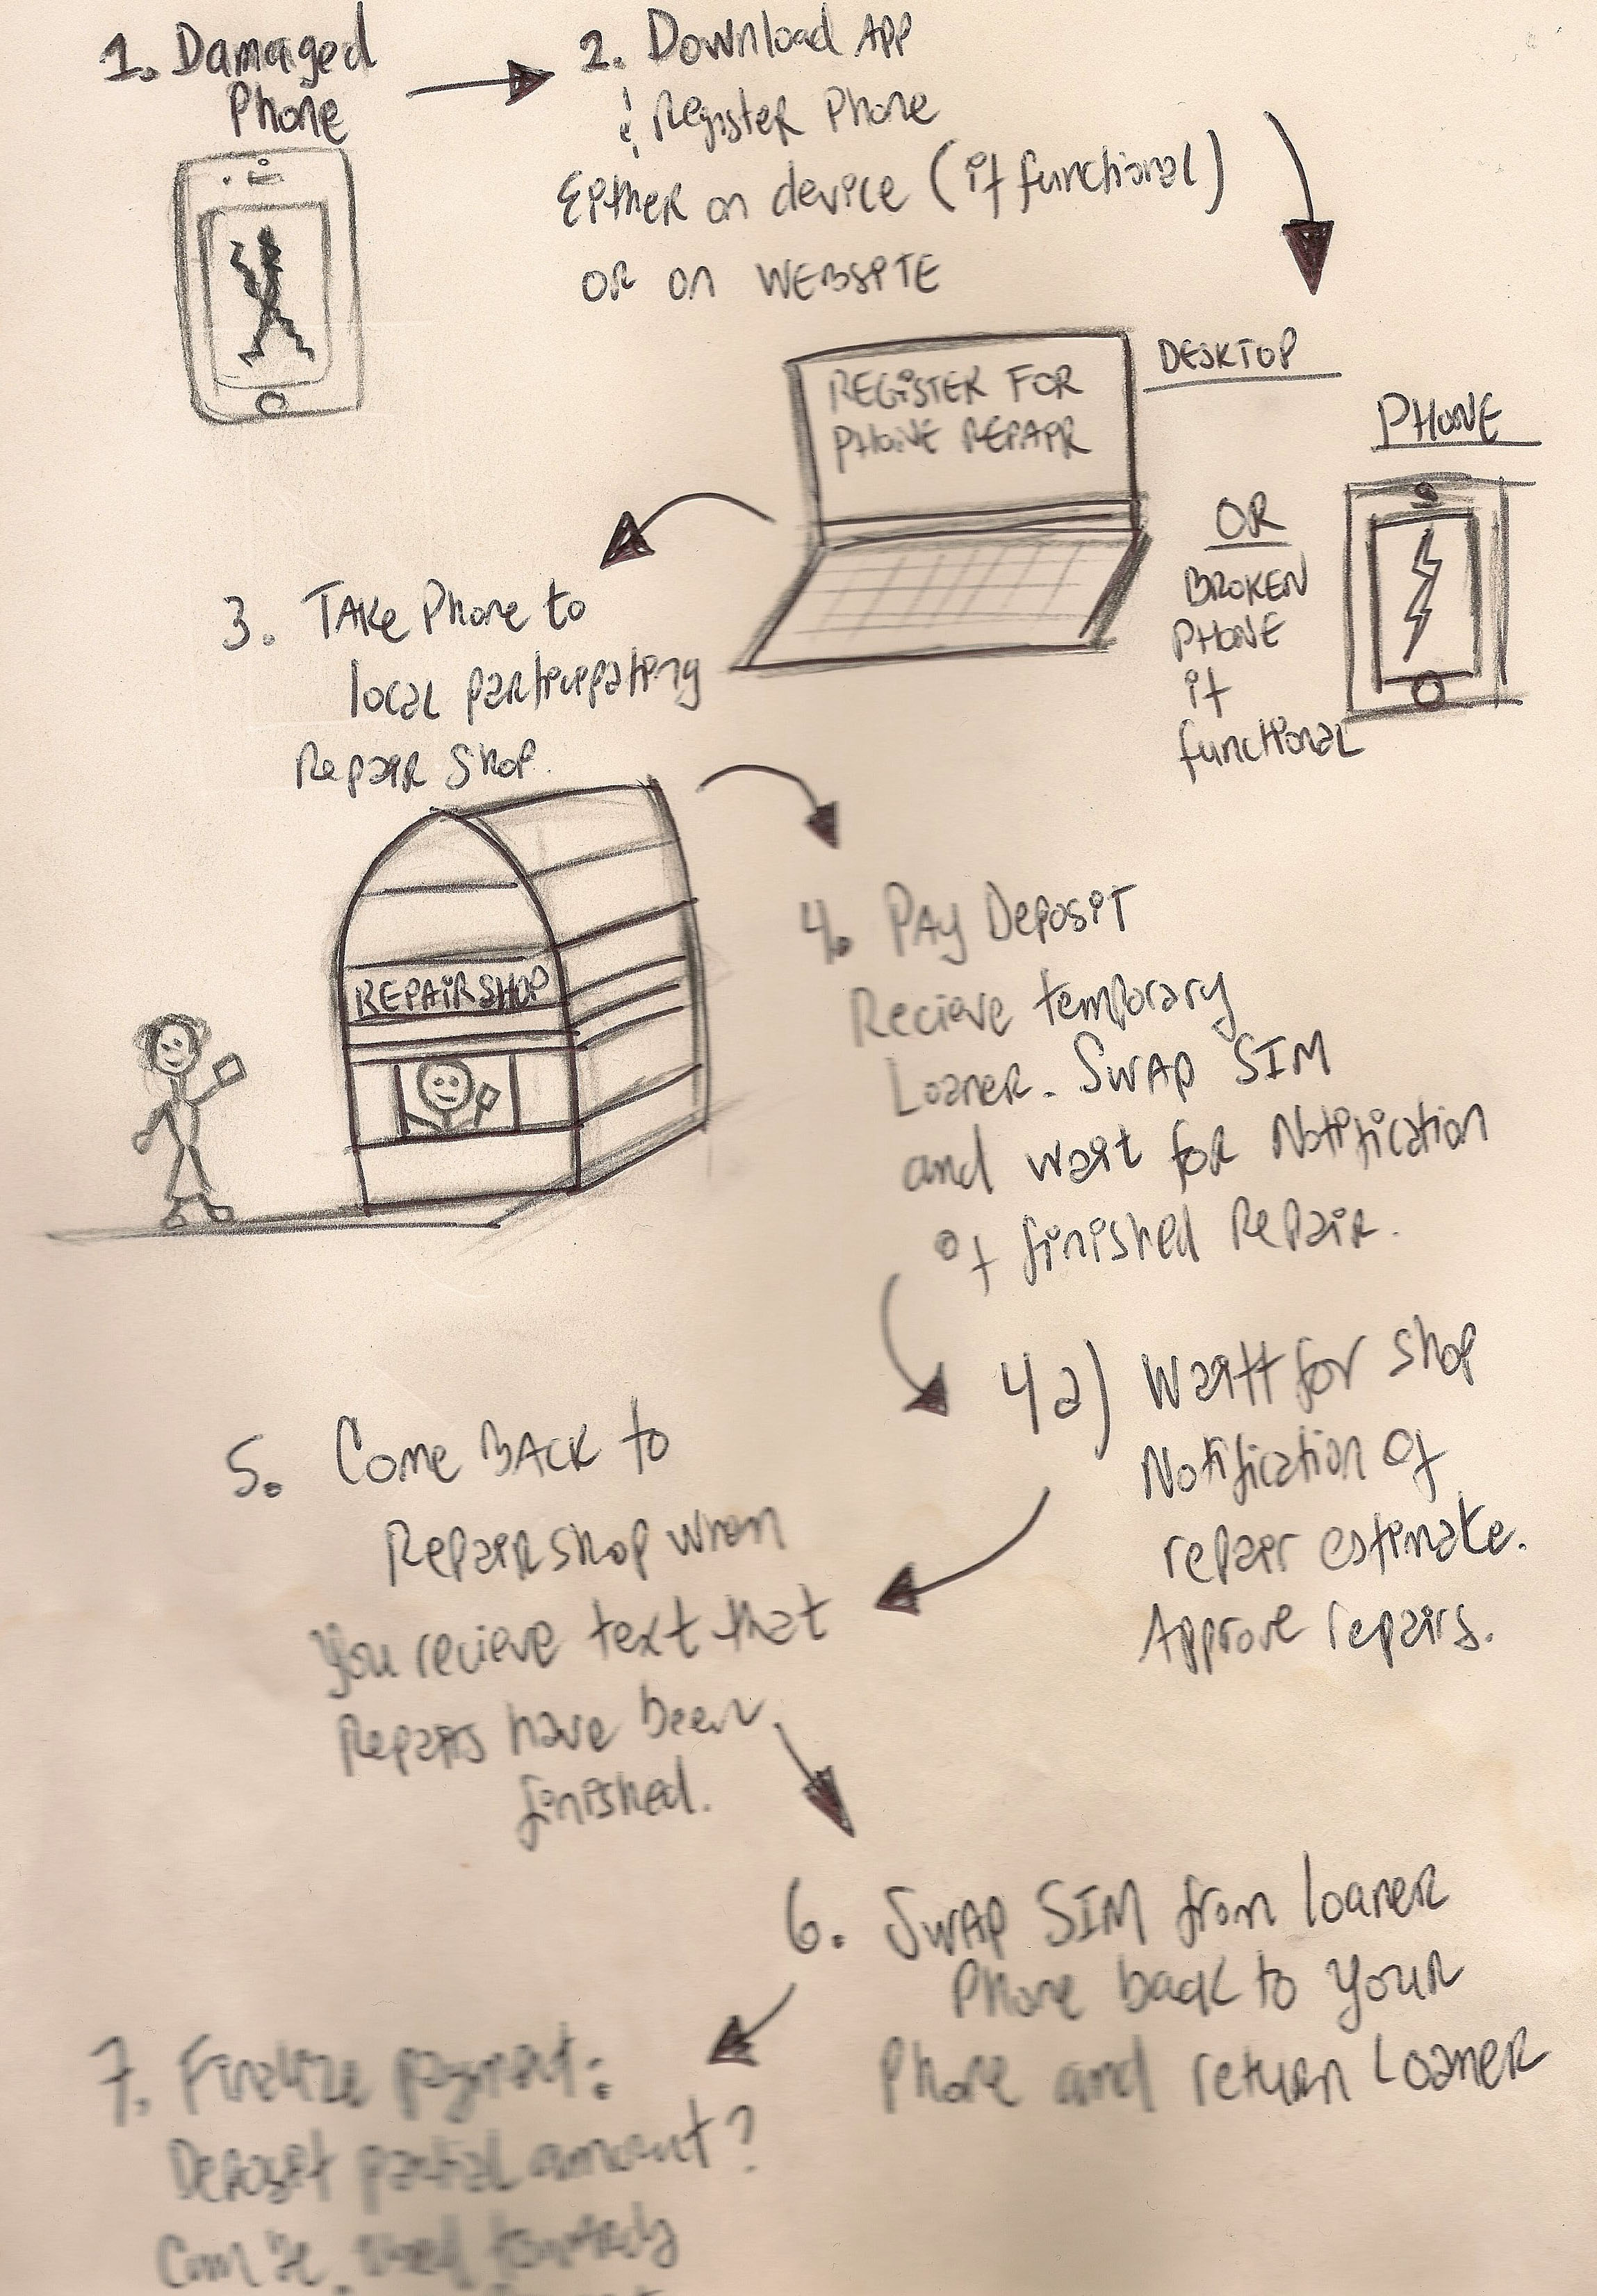 1. Damaged
Phone
2. Download APP
& Register Phone
Either on device (if functional)
OR on WEBSITE
DESKTOP
REGISTER FOR
PHONE REPAIR
PHONE
OR
BROKEN
PHONE
if
functional
3. TAKE Phone to
local participating
Repair Shop.
REPAIR SHOP
4. PAY DEPOSIT
Recieve temporary
Loaner. SWAP SIM
and wait for Notification
of finished Repair.
4a) Waitt for shop
Notification of
repair estimate.
Approve repairs.
5. Come BACK to
Repair shop when
You recieve text that
Repairs have been
finished.
6. SWAP SIM from loaner
Phone back to your
Phone and return Loaner
7. Finalize payment:
Deposit partial amount?
Can be used towards